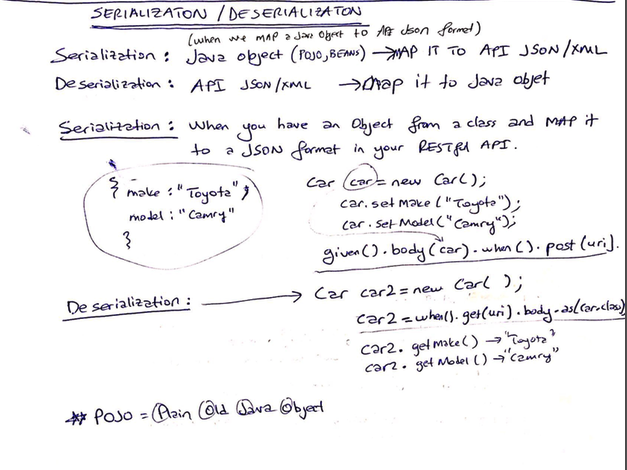 SERIALIZATON / DESERIALIZATON
(when we MAP a Java Object to API Json format)
Serialization : Java object (POJO, BEANS) → MAP IT TO API JSON/XML
Deserialization : API JSON/XML → Map it to Java objet
Serialization : When you have an Object from a class and MAP it
to a JSON format in your RESTful API.
{ make : "Toyota",
model : "Camry"
}
Car car = new Car();
car.setMake("Toyota");
car.setModel("Camry");
given().body(car).when().post(uri).
Deserialization : → Car car2 = new Car( );
car2 = when().get(uri).body.as(Car.class)
car2. getMake() → "Toyota"
car2. getModel() → "Camry"
** POJO = Plain Old Java Object